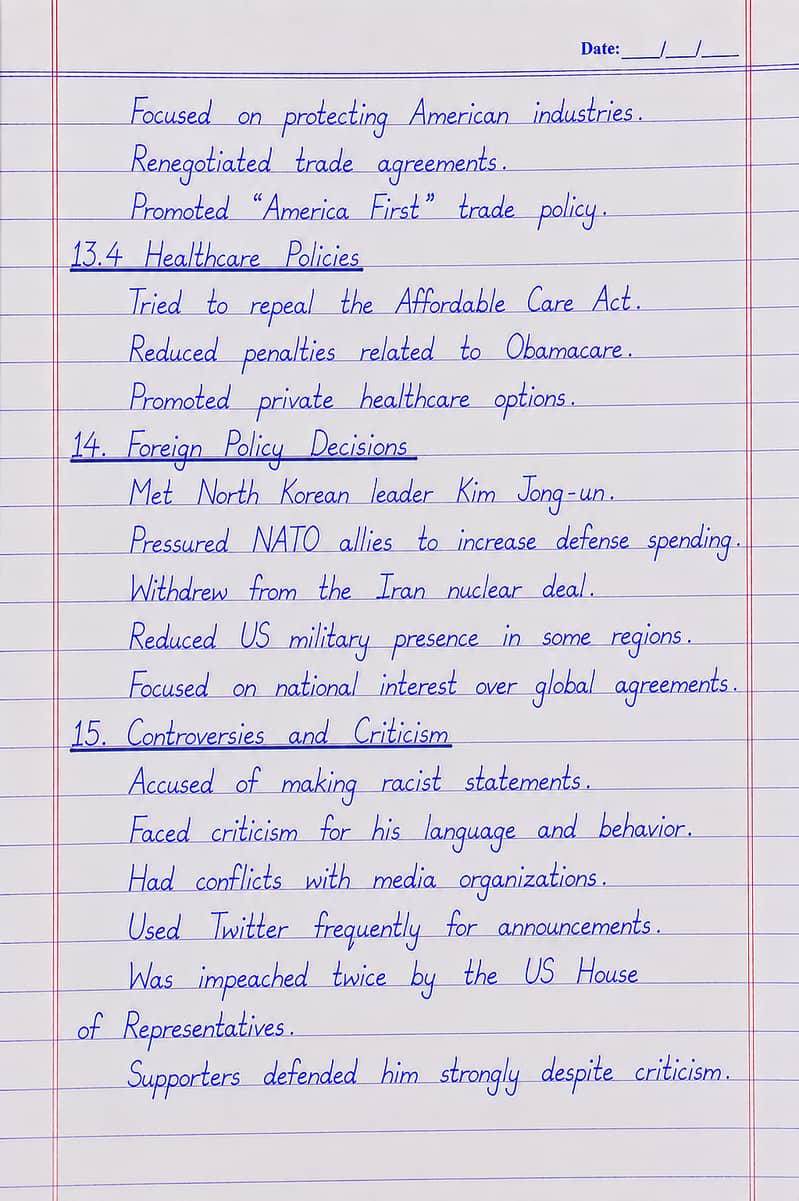 Date: ___/___/___
Focused on protecting American industries.
Renegotiated trade agreements.
Promoted “America First” trade policy.
13.4 Healthcare Policies
Tried to repeal the Affordable Care Act.
Reduced penalties related to Obamacare.
Promoted private healthcare options.
14. Foreign Policy Decisions
Met North Korean leader Kim Jong-un.
Pressured NATO allies to increase defense spending.
Withdrew from the Iran nuclear deal.
Reduced US military presence in some regions.
Focused on national interest over global agreements.
15. Controversies and Criticism
Accused of making racist statements.
Faced criticism for his language and behavior.
Had conflicts with media organizations.
Used Twitter frequently for announcements.
Was impeached twice by the US House
of Representatives.
Supporters defended him strongly despite criticism.